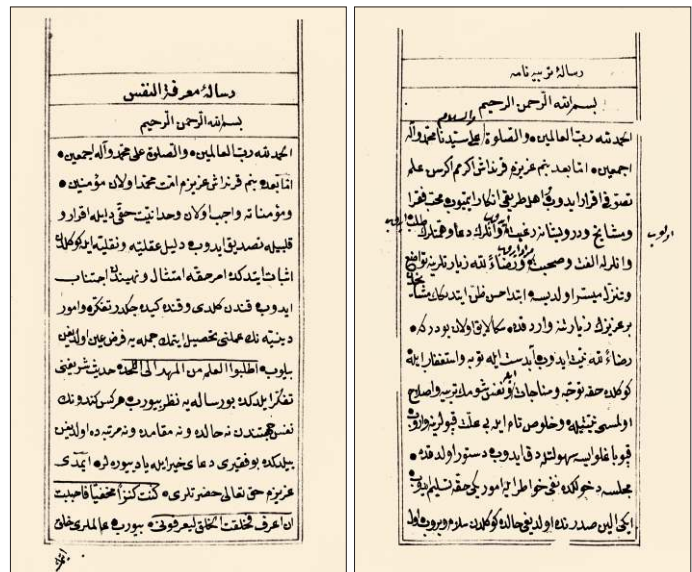 رسالۀ تربیه نامه
بسم الله الرحمن الرحیم
الحمد لله رب العالمین والصلوة والسلام علی سیدنا محمد وآله
اجمعین اما بعد بنم فرزنداش اکرمم اکرسن علم
تصوفی اقرار ایدوب اهل طریقی انکار ایتمیوب محب فقرا
ومشایخ ودرویشانه رغبت ایدوب وانلرك دعا وهمتلرك طلب ایدوب
وانلرله الفت وصحبت ورضاء لله زیارتلرینه تواضع
وتنزل میسر اولدیسه ابتدا حسن ظن ایتدیكك مشایخدن
بر عزیزك زیارتنه وارد قده سكا لایق اولان بودر که
رضاء لله نیت ایدوب آبدست ایله توبه واستغفار ایله
کوکلده حقه توجه ومناجات ایدوب نفس شومك تربیه واصلاح
اولمسی نیتیله وخلوص تام ایله بی علت قپولرینه واروب
قپو باغلو ایسه سهولتله دق ایدوب دستور اولدقده
مجلسه دخولكده نفی خواطر ایله امورکی حقه تسلیم ایدوب
ایکی الین صدرنده اولدیغی حالده کوکلدن سلام ویروب اول
رسالۀ معرفة النفس
بسم الله الرحمن الرحیم
الحمد لله رب العالمین والصلوة علی محمد وآله اجمعین
اما بعد بنم فرزنداش عزیزم امت محمد اولان مؤمنین
ومؤمناته واجب اولان وحدانیت حقی دلیله اقرار و
قلبیله تصدیق ایدوب دلیل عقلیه ونقلیه ایله کوکلده
اثبات ایتدكده امر حقه امتثال ونهیندن اجتناب
ایدوب قندن کلدی وقنده کیده جکدر تفکره وامور
دینیه نك علمنی تحصیل ایتمك جمله یه فرض عین اولدیغن
بیلوب اطلبوا العلم من المهد الی اللحد حدیث شریفنی
تفکر ایلدكده بو رساله یه نظر بیوروب هرکس کندونك
نفسی جهتندن نه حالده ونه مقامده ونه مرتبه ده اولدیغن
بیلدكده بو فقیری دعای خیر ایله یاد بیوره لر ایمدی
عزیزم حق تعالی حضرتلری کنت کنزا مخفیا فاحببت
ان اعرف فخلقت الخلق لیعرفونی بیوروب عالملری خلق